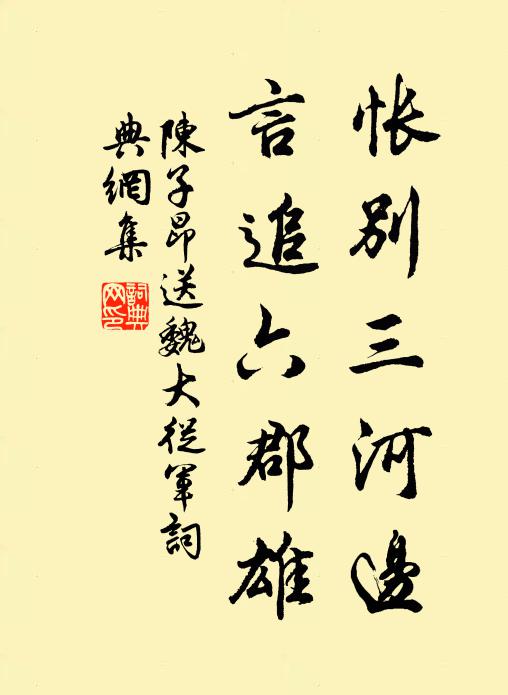 悵別三河邊
言追六郡雄
陳子昂送魏大從軍詞
典網集
詞典
网印